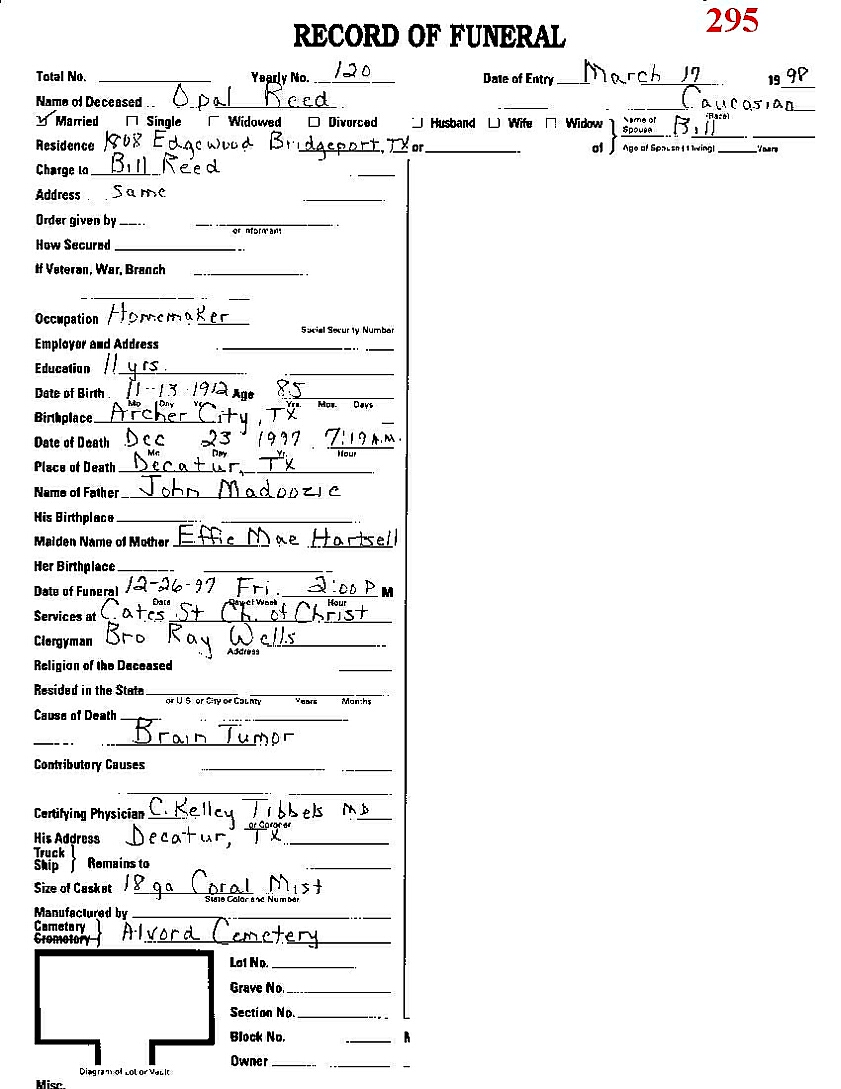 295
RECORD OF FUNERAL
Total No. Yearly No. 120 Date of Entry March 17 1998
Name of Deceased Opal Reed Caucasian
(Race)
Married Single Widowed Divorced Husband Wife Widow Name of Spouse Bill
Residence 1808 Edgewood Bridgeport, TX or of Age of Spouse (if living) Years
Charge to Bill Reed
Address Same
Order given by
or Informant
How Secured
If Veteran, War, Branch
Occupation Homemaker
Social Security Number
Employor and Address
Education 11 yrs.
Date of Birth 11-13-1912 Age 85
Mo Day Yr. Yrs. Mos. Days
Birthplace Archer City, TX
Date of Death Dec 23 1997 7:19 A.M.
Mo Day Yr. Hour
Place of Death Decatur, TX
Name of Father John Madoozie
His Birthplace
Maiden Name of Mother Effie Mae Hartsell
Her Birthplace
Date of Funeral 12-26-97 Fri. 2:00 P M
Date Day of Week Hour
Services at Cates St Ch. of Christ
Clergyman Bro Ray Wells
Address
Religion of the Deceased
Resided in the State
or U.S. or City or County Years Months
Cause of Death
Brain Tumor
Contributory Causes
Certifying Physician C. Kelley Tibbels MD
or Coroner
His Address Decatur, TX
Truck
Ship Remains to
Size of Casket 18 ga Coral Mist
State Color and Number
Manufactured by
Cemetery
Crematory Alvord Cemetery
Lot No.
Grave No.
Section No.
Block No.
Owner
Diagram of Lot or Vault
Misc.